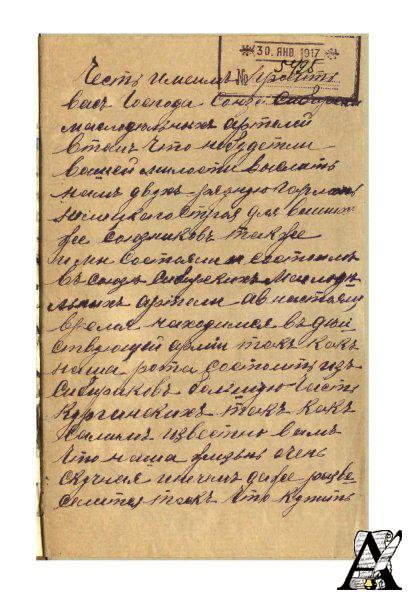 30. ЯНВ. 1917
№ 5495
Честь имеимъ просить
васъ Господа Союза Сибирски
маслодѣльныхъ артелей
втомъ что небудетли
вашей милости выслать
намъ двухъ рядную гармонь
немецкаго строя для ваших
же союзниковъ также
и мы составляли и состоимъ
въ союзѣ Сибирскихъ Маслодѣ
льныхъ артели авнастоящи
время находимся въ дѣй
ствующей армии такъ какъ
наша рота состоитъ изъ
сибиряковъ большую часть
Курганскихъ такъ какъ
самимъ известно вамъ
что наша жизнь очень
скучная инечемъ даже разве
селится такъ что купить
А